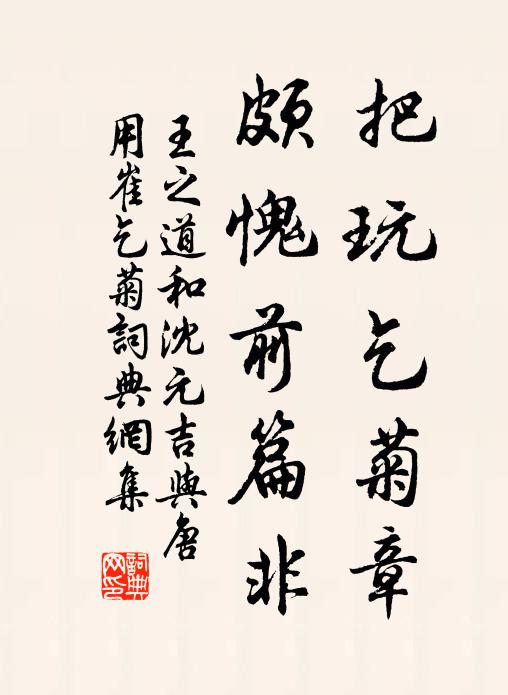 把玩乞菊章
頗愧前篇非
王之道和沈元吉與唐
用崔乞菊詞典網集
詞典
网印